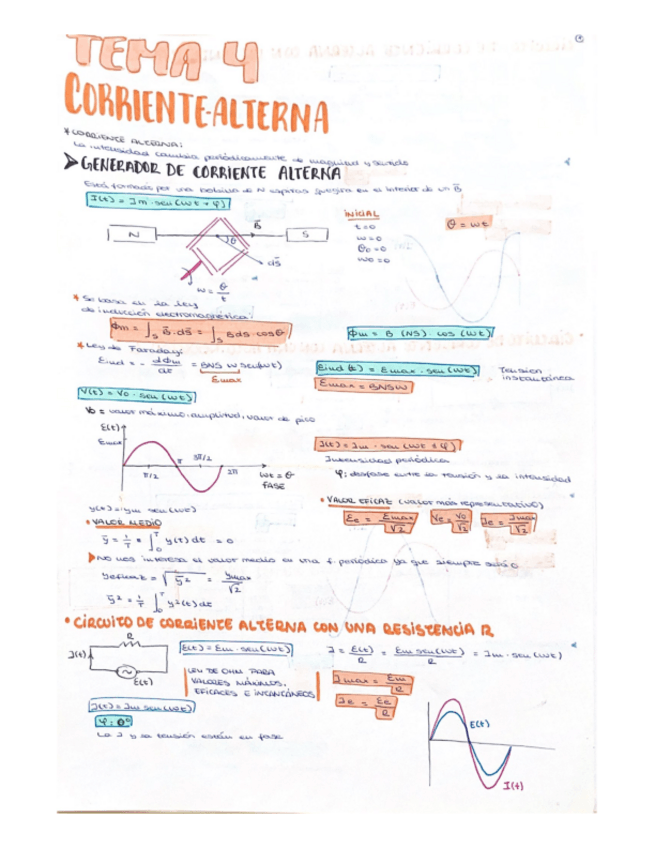 TEMA 4
CORRIENTE-ALTERNA
* CORRIENTE ALTERNA:
La intensidad cambia periódicamente de magnitud y sentido
➤ GENERADOR DE CORRIENTE ALTERNA
Está formado por una bobina de N espiras que gira en el interior de un B⃗
I(t) = Im · sen (wt + φ)
N
B⃗
S
θ
dS⃗
w = θ/t
INICIAL
t=0
w=0
θ0=0
w0=0
θ = wt
* Se basa en la ley
de inducción electromagnética:
Φm = ∫s B⃗·dS⃗ = ∫s B ds cosθ
Φm = B (NS) · cos (wt)
* Ley de Faraday:
Eind = - dΦm/dt = BNS w sen(wt)
Emax
Eind (t) = Emax · sen(wt)
Tensión
instantánea
Emax = BNSW
V(t) = Vo · sen (wt)
Vo = valor máximo, amplitud, valor de pico
E(t)
Emax
π/2
π
3π/2
2π
wt = θ
FASE
I(t) = Im · sen (wt ± φ)
Intensidad periódica
φ: desfase entre la tensión y la intensidad
y(t)=ym sen(wt)
• VALOR MEDIO
ȳ = 1/T ∫₀ᵀ y(t) dt = 0
• VALOR EFICAZ (valor más representativo)
Ee = Emax/√2
Ve = Vo/√2
Ie = Imax/√2
➤ No nos interesa el valor medio en una f. periódica ya que siempre será 0
yeficaz = √ȳ² = ymax/√2
ȳ² = 1/T ∫₀ᵀ y²(t) dt
• CIRCUITO DE CORRIENTE ALTERNA CON UNA RESISTENCIA R
R
I(t)
E(t)
E(t) = Em · sen(wt)
I = E(t)/R = Em sen(wt)/R = Im · sen(wt)
LEY DE OHM PARA
VALORES MÁXIMOS,
EFICACES E INSTANTÁNEOS
Imax = Em/R
Ie = Ee/R
I(t) = Im sen(wt)
φ: 0°
La I y la tensión están en fase
E(t)
I(t)